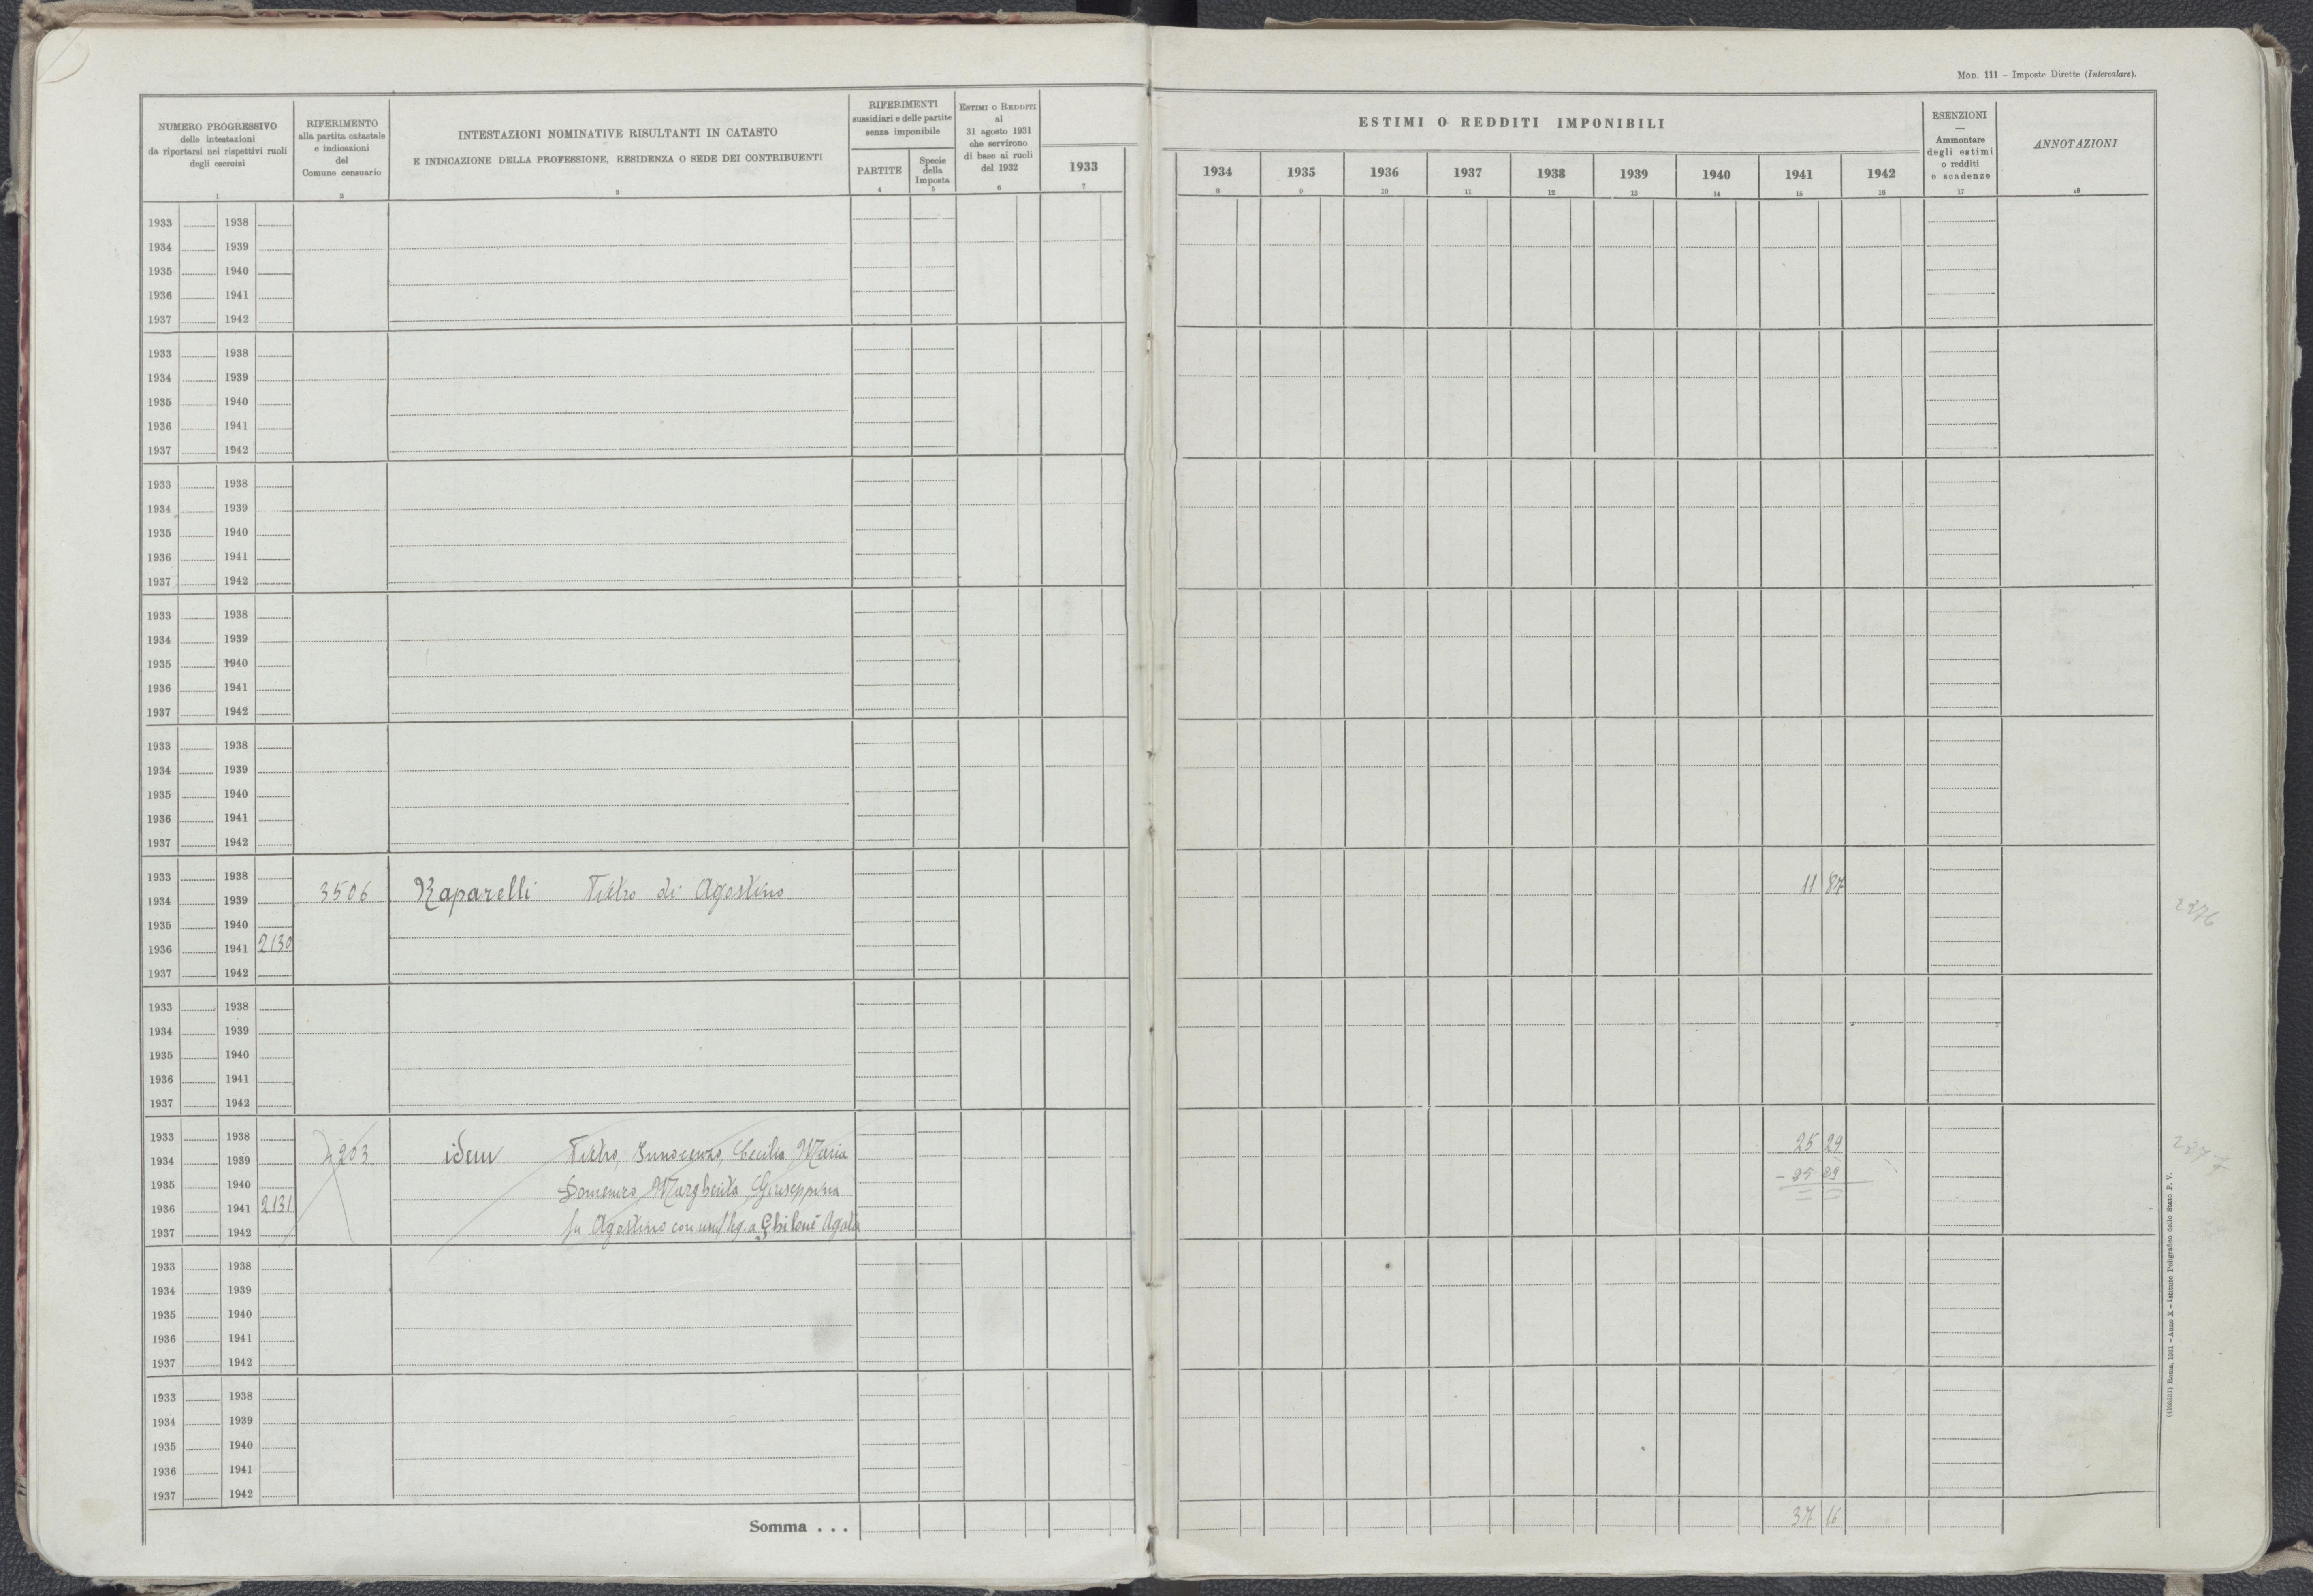 Mod. 111 – Imposte Dirette (Intercalare).
NUMERO PROGRESSIVO
delle intestazioni
da riportarsi nei rispettivi ruoli
degli esercizi
1
RIFERIMENTO
alla partita catastale
e indicazioni
del
Comune censuario
2
INTESTAZIONI NOMINATIVE RISULTANTI IN CATASTO
E INDICAZIONE DELLA PROFESSIONE, RESIDENZA O SEDE DEI CONTRIBUENTI
3
RIFERIMENTI
sussidiari e delle partite
senza imponibile
PARTITE
4
Specie
della
Imposta
5
ESTIMI O REDDITI
al
31 agosto 1931
che servirono
di base ai ruoli
del 1932
6
1933
7
ESTIMI O REDDITI IMPONIBILI
1934 1935 1936 1937 1938 1939 1940 1941 1942
8 9 10 11 12 13 14 15 16
ESENZIONI
—
Ammontare
degli estimi
o redditi
e scadenze
17
ANNOTAZIONI
18
1933 1938
1934 1939
1935 1940
1936 1941
1937 1942
1933 1938
1934 1939
1935 1940
1936 1941
1937 1942
1933 1938
1934 1939
1935 1940
1936 1941
1937 1942
1933 1938
1934 1939
1935 1940
1936 1941
1937 1942
1933 1938
1934 1939
1935 1940
1936 1941
1937 1942
1933 1938
1934 1939 3506 Raparelli Pietro di Agostino 11 87
1935 1940
1936 1941 2130
1937 1942
2276
1933 1938
1934 1939
1935 1940
1936 1941
1937 1942
1933 1938
1934 1939 4203 idem Pietro, Innocenzo, Cecilia, Maria 25 29
1935 1940 Domenico, Margherita, Giuseppina – 25 29
1936 1941 2131
1937 1942 fu Agostino con usuf. leg. a Ghiloni Agata
2277
1933 1938
1934 1939
1935 1940
1936 1941
1937 1942
1933 1938
1934 1939
1935 1940
1936 1941
1937 1942
Somma . . . 37 16
Roma, 1931 – Anno X – Istituto Poligrafico dello Stato P. V.